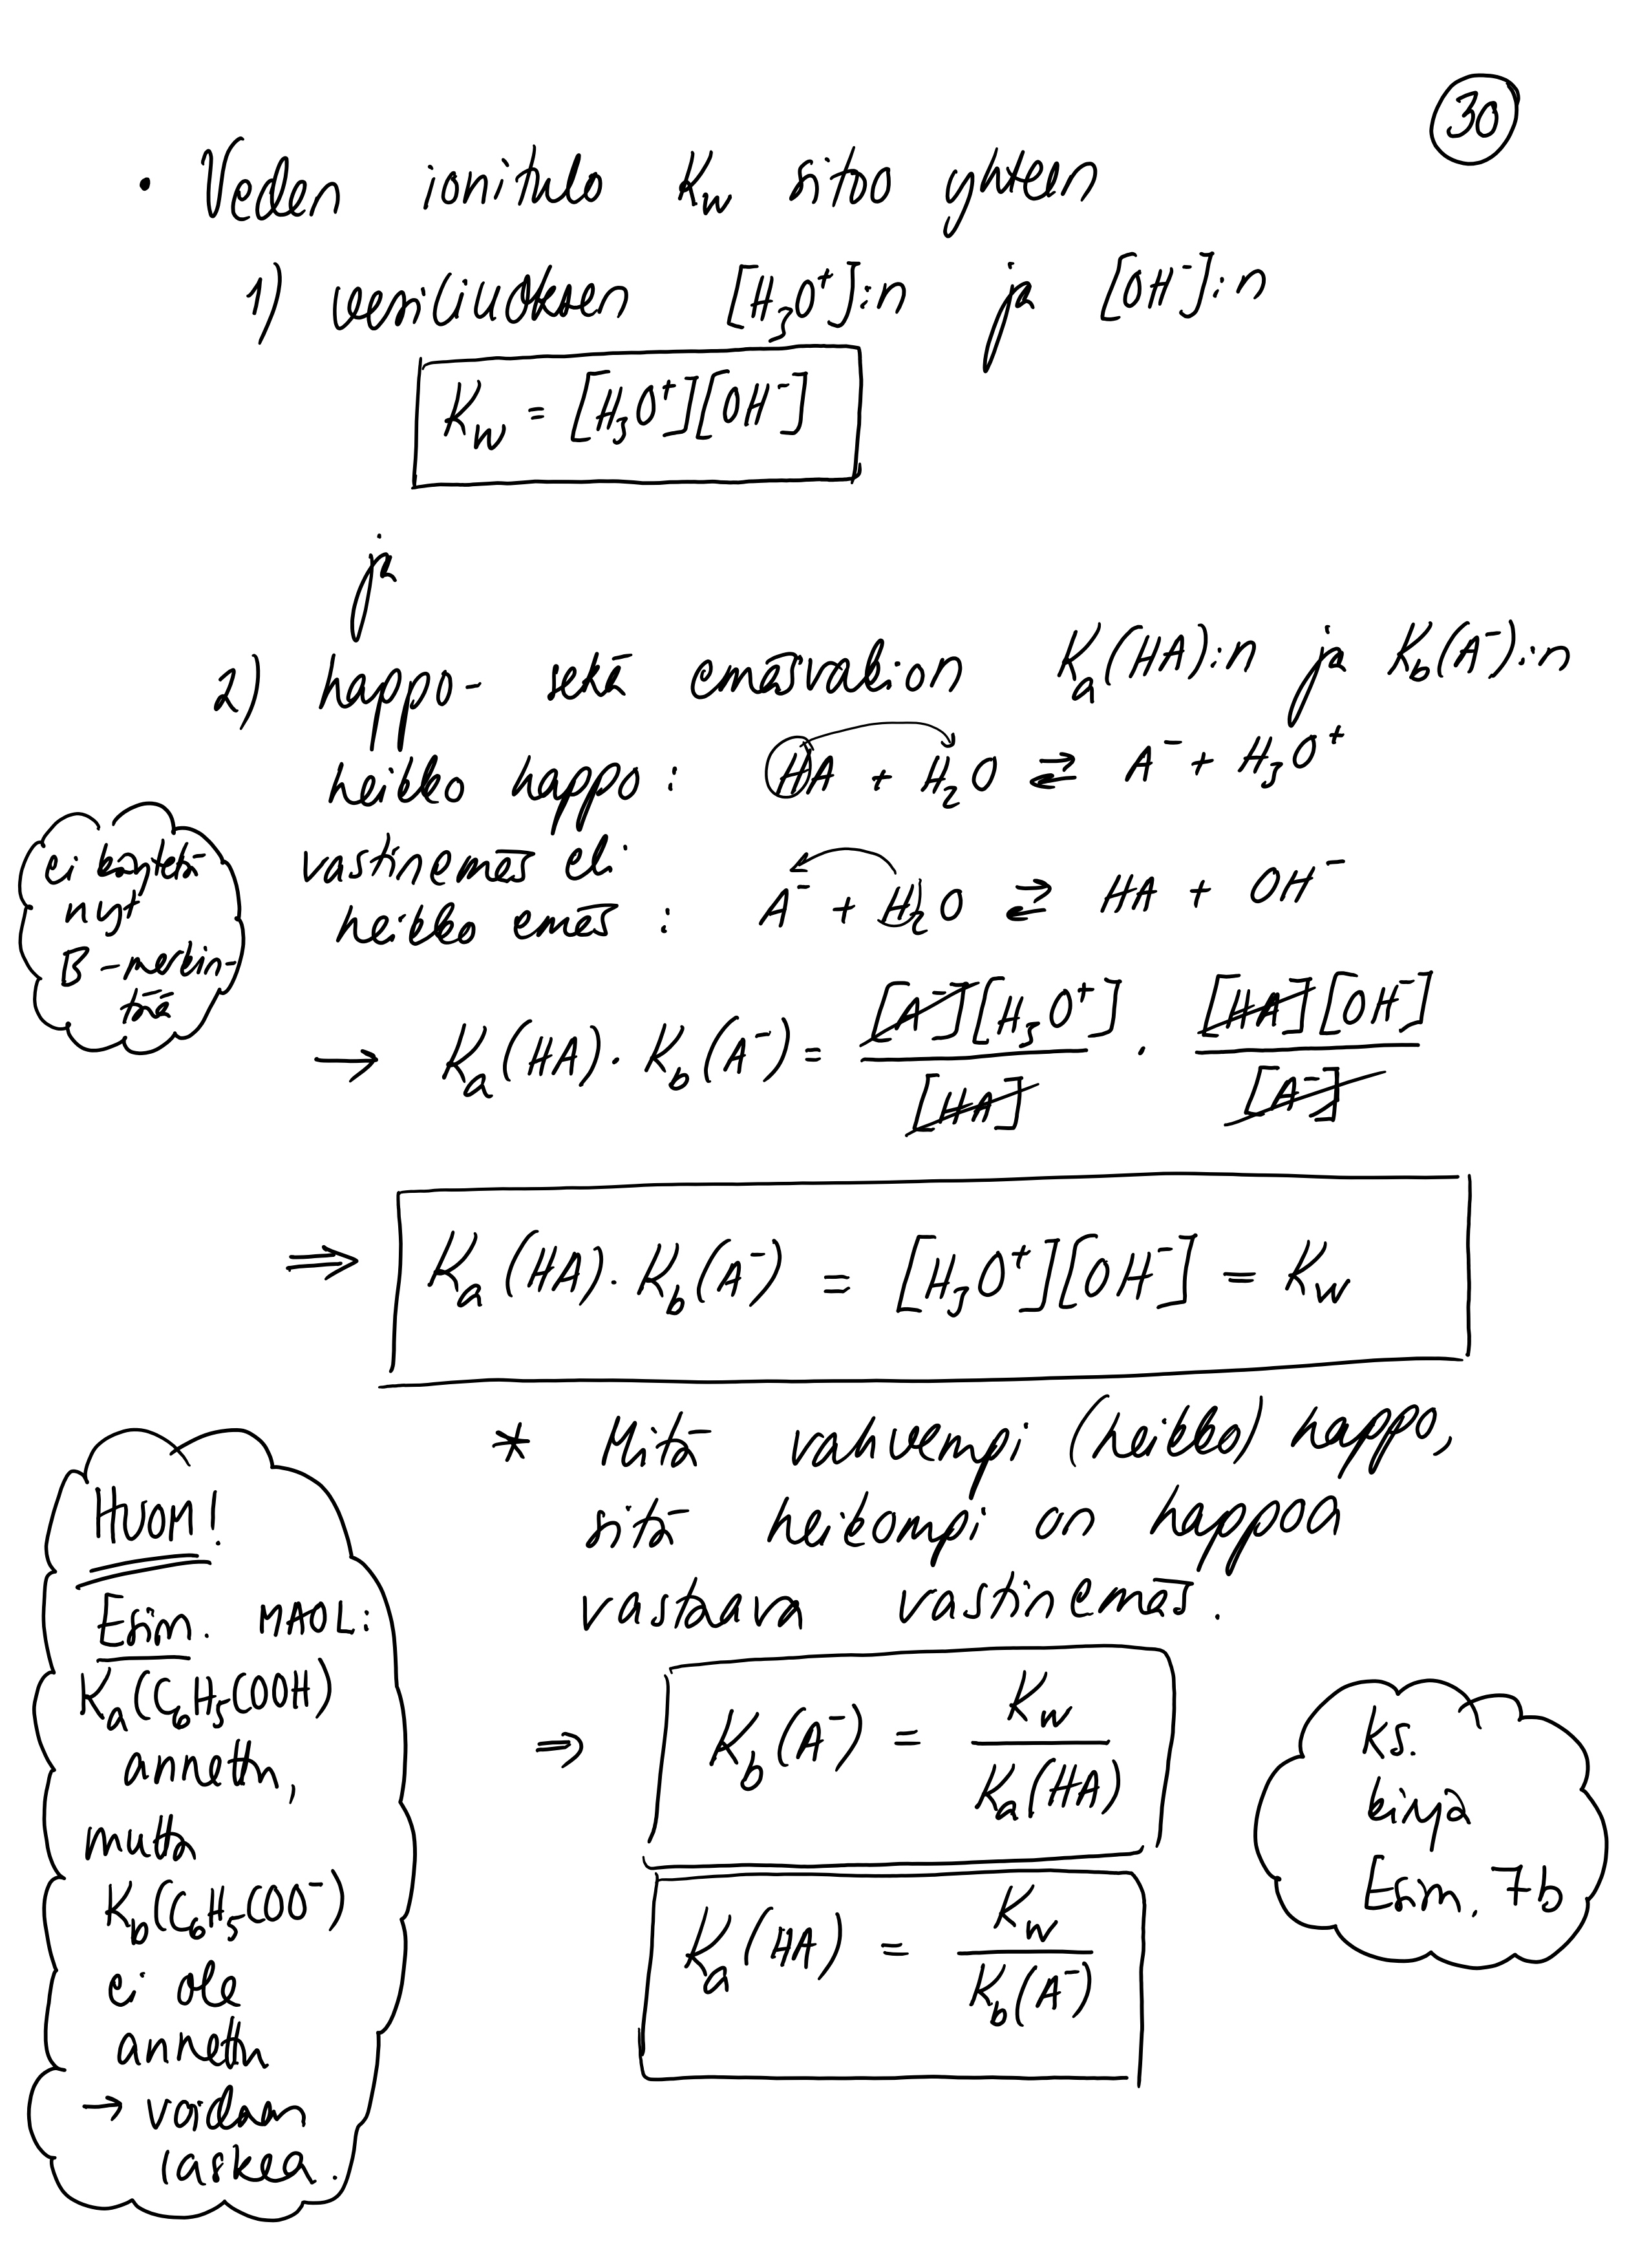 30
• Veden ionitulo Kw sitoo yhteen
1) vesiliuoksen [H₃O⁺]:n ja [OH⁻]:n
Kw = [H₃O⁺][OH⁻]
ja
2) happo- sekä emäsvakion Ka(HA):n ja Kb(A⁻):n
heikko happo: HA + H₂O ⇄ A⁻ + H₃O⁺
vastinemäs eli
heikko emäs: A⁻ + H₂O ⇄ HA + OH⁻
ei käytetä
nyt
B-merkin-
tää
→ Ka(HA) · Kb(A⁻) = [A⁻][H₃O⁺] / [HA] · [HA][OH⁻] / [A⁻]
⇒ Ka(HA) · Kb(A⁻) = [H₃O⁺][OH⁻] = Kw
* Mitä vahvempi (heikko) happo,
sitä heikompi on happoa
vastaava vastinemäs.
⇒ Kb(A⁻) = Kw / Ka(HA)
Ka(HA) = Kw / Kb(A⁻)
HUOM!
Esim. MAOL:
Ka(C₆H₅COOH)
annettu,
mutta
Kb(C₆H₅COO⁻)
ei ole
annettu
→ voidaan
laskea.
ks.
kirja
Esim. 7b